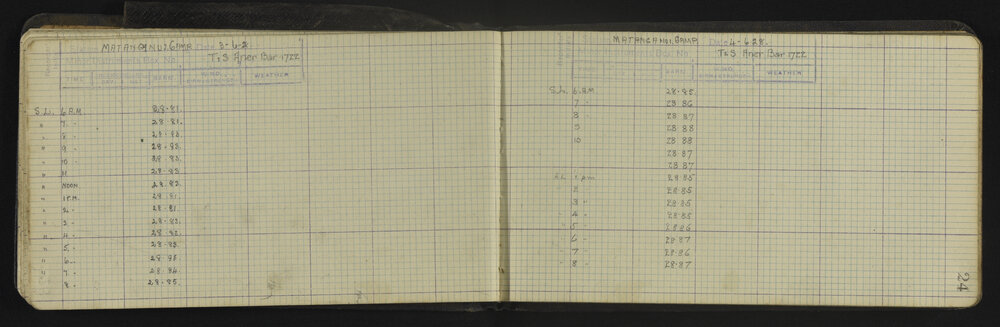 MATANGANUI CAMP. Date 3-6-28
T&S Aner Bar 1722
TIME BARM WIND WEATHER
S.L. 6 A.M. 28.81.
" 7 " 28.81.
" 8 " 28.83.
" 9 " 28.83.
" 10 " 28.83.
" 11 28.83.
" NOON 28.82.
" 1 P.M. 28.81.
" 2 " 28.81.
" 3 " 28.83.
" 4 " 28.82.
" 5 " 28.83.
" 6 " 28.83.
" 7 " 28.84.
" 8 " 28.85.
MATANGANUI CAMP. Date 4-6-28.
T&S Aner Bar 1722
TIME BARM WIND WEATHER
S.L. 6 AM 28.85.
7 " 28 86
8 " 28 87
9 28 88
10 28 88
28 87
28 87
1 pm 28.85
2 28.85
3 " 28.85
4 " 28.85
5 " 28.86
6 " 28.87
7 " 28.86
8 " 28.87
24